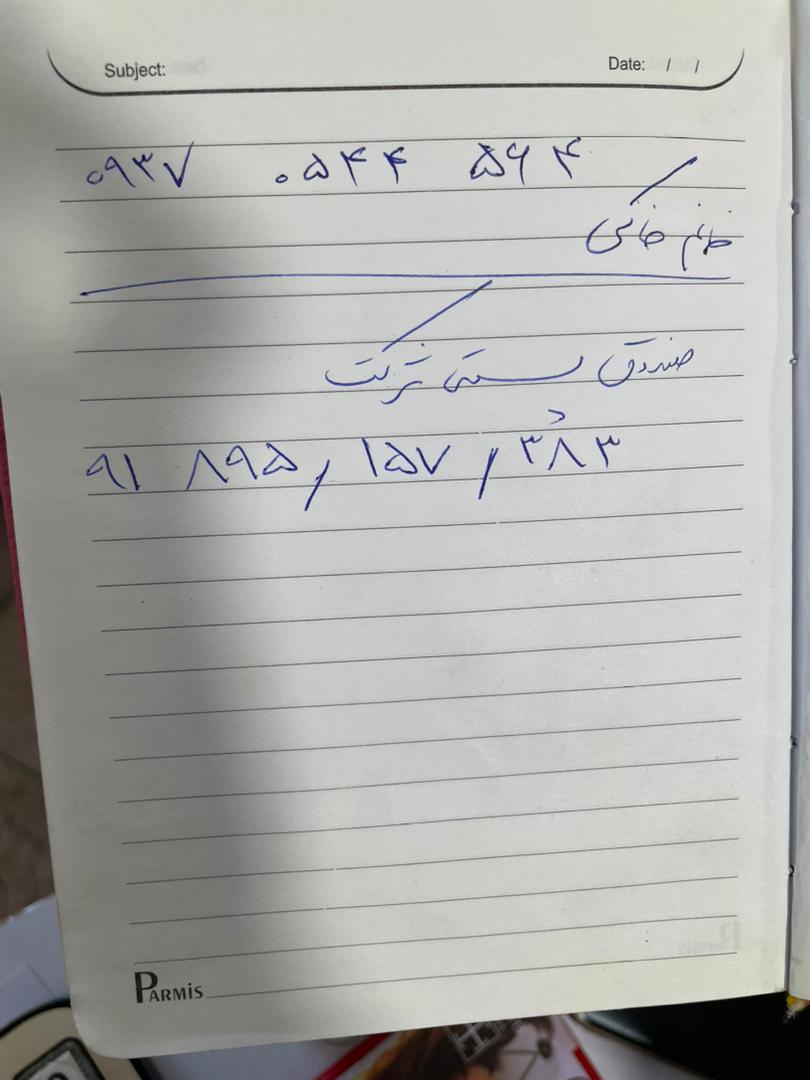 Subject:
Date: / /
۰۹۳۷ ۰۵۴۴ ۵۶۴
خانم خانی
صندوق پستی شرکت
۹۱ ۸۹۵ / ۱۵۷ / ۳۸۳
PARMIS